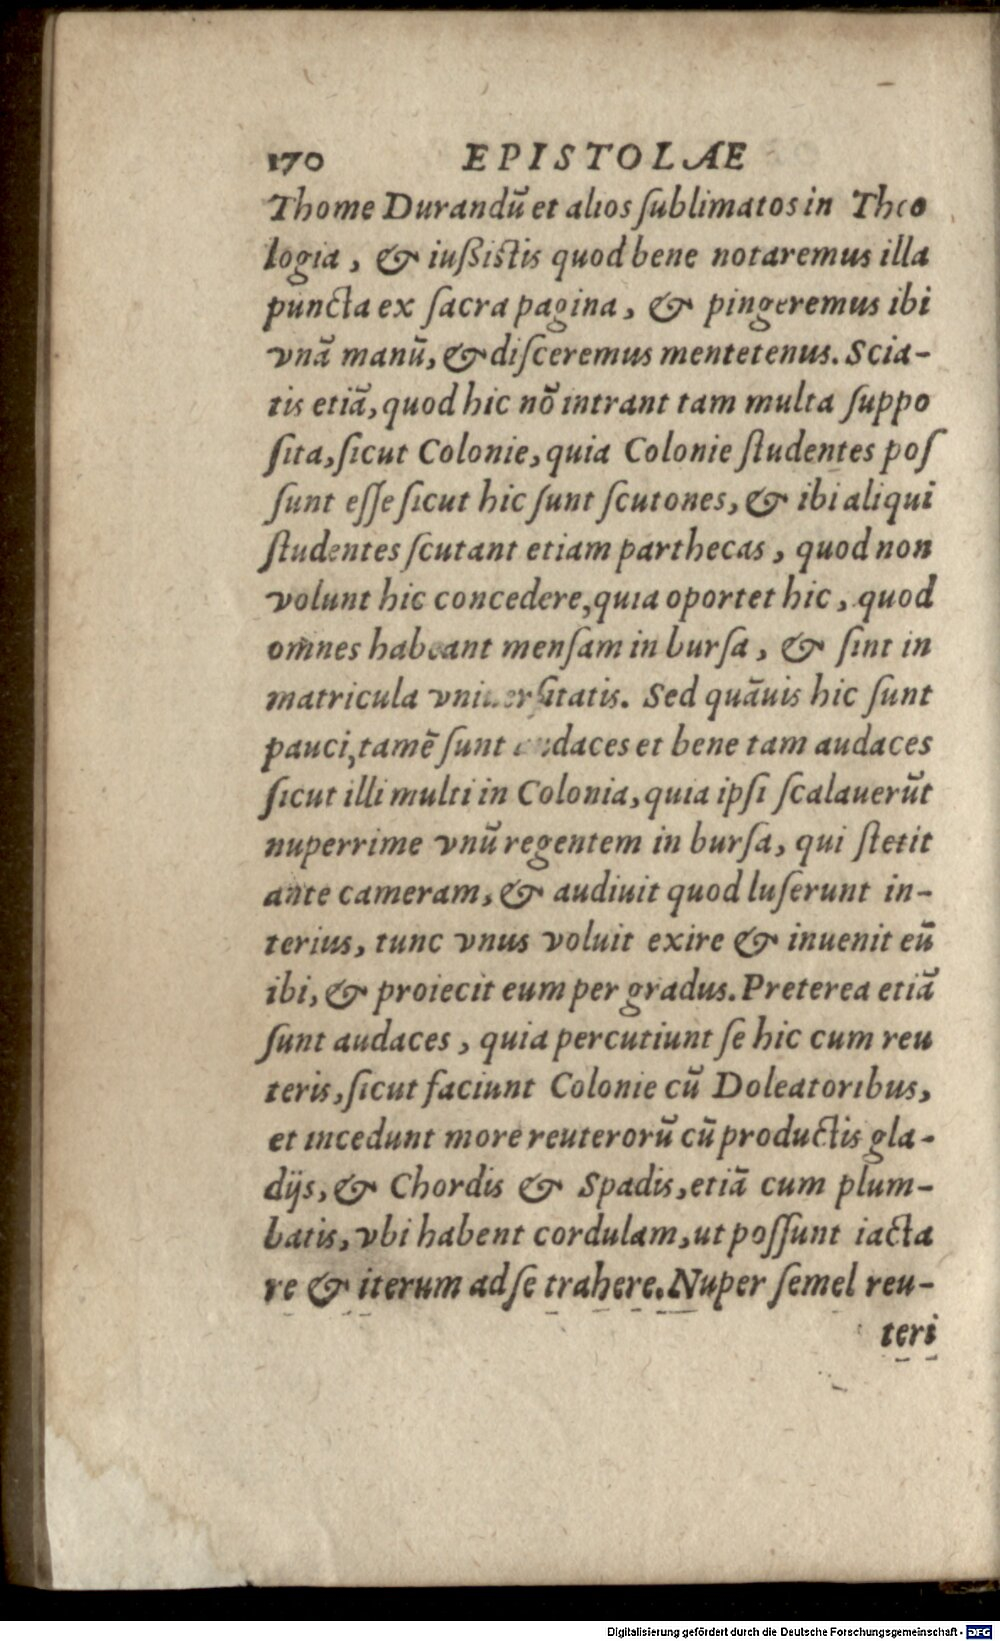 170 EPISTOLAE
Thome Durandũ et alios ſublimatos in Theo
logia, & iußiſtis quod bene notaremus illa
puncta ex ſacra pagina, & pingeremus ibi
vnã manũ, & diſceremus mentetenus. Scia-
tis etiã, quod hic nõ intrant tam multa ſuppo
ſita, ſicut Colonie, quia Colonie ſtudentes poſ
ſunt eſſe ſicut hic ſunt ſcutones, & ibi aliqui
ſtudentes ſcutant etiam parthecas, quod non
volunt hic concedere, quia oportet hic, quod
omnes habeant menſam in burſa, & ſint in
matricula vniuerſitatis. Sed quãuis hic ſunt
pauci, tamẽ ſunt audaces et bene tam audaces
ſicut illi multi in Colonia, quia ipſi ſcalauerũt
nuperrime vnũ regentem in burſa, qui ſtetit
ante cameram, & audiuit quod luſerunt in-
terius, tunc vnus voluit exire & inuenit eũ
ibi, & proiecit eum per gradus. Preterea etiã
ſunt audaces, quia percutiunt ſe hic cum reu
teris, ſicut faciunt Colonie cũ Doleatoribus,
et incedunt more reuterorũ cũ productis gla-
dijs, & Chordis & Spadis, etiã cum plum-
batis, vbi habent cordulam, ut poſſunt iacta
re & iterum ad ſe trahere. Nuper ſemel reu-
teri
Digitalisierung gefördert durch die Deutsche Forschungsgemeinschaft - DFG